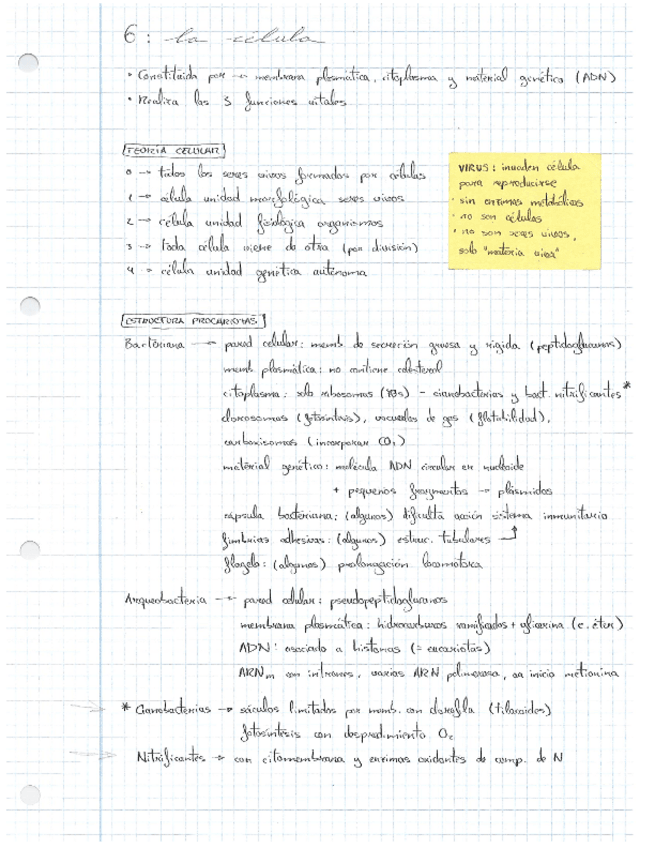 6: la célula
· Constituida por → membrana plasmática, citoplasma y material genético (ADN)
· Realiza las 3 funciones vitales
TEORÍA CELULAR
0 → todos los seres vivos formados por células
1 → célula unidad morfológica seres vivos
2 → célula unidad fisiológica organismos
3 → toda célula viene de otra (por división)
4 → célula unidad genética autónoma
VIRUS: invaden célula
para reproducirse
· sin enzimas metabólicas
· no son células
· no son seres vivos,
solo "materia viva"
ESTRUCTURA PROCARIOTAS
Bacteriana → pared celular: memb. de secreción gruesa y rígida (peptidoglucanos)
memb. plasmática: no contiene colesterol
citoplasma: solo ribosomas (70s) - cianobacterias y bact. nitrificantes *
clorosomas (fotosíntesis), vacuolas de gas (flotabilidad),
carboxisomas (incorporan CO2)
material genético: molécula ADN circular en nucleoide
+ pequeños fragmentos → plásmidos
cápsula bacteriana: (algunos) dificulta acción sistema inmunitario
fimbrias adhesivas: (algunos) estruc. tubulares
flagelo: (algunos) prolongación locomotora
Arqueobacteria → pared celular: pseudopeptidoglucanos
membrana plasmática: hidrocarburos ramificados + glicerina (e. éter)
ADN: asociado a histonas (= eucariotas)
ARNm con intrones, varias ARN polimerasa, aa inicio metionina
* Cianobacterias → sáculos limitados por memb. con clorofila (tilacoides)
fotosíntesis con desprendimiento O2
Nitrificantes → con citomembrana y enzimas oxidantes de comp. de N